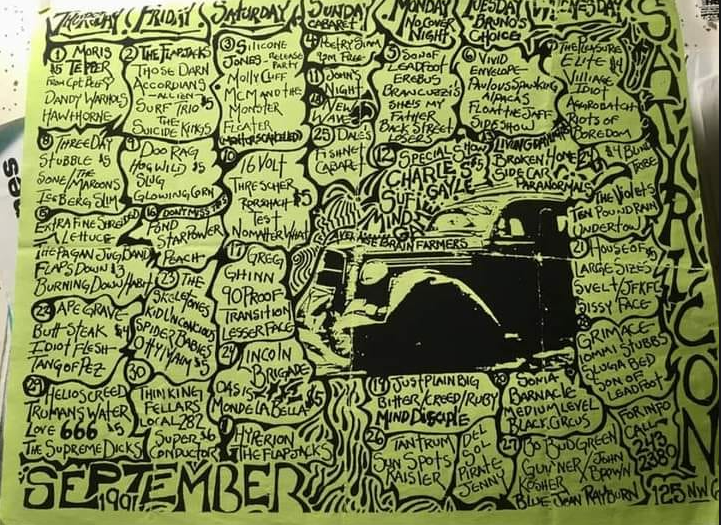 THURSDAY
FRIDAY
SATURDAY
SUNDAY
CABARET
MONDAY
NO COVER
NIGHT
TUESDAY
BRUNO'S
CHOICE
1 MORIS
$5 TEPPER
FROM CPT BEEFY
DANDY WARHOLS
HAWTHORNE
2 THE FLAPJACKS
THOSE DARN
ACCORDIANS
CALIENTE
SURF TRIO $5
THE
SUICIDE KINGS
3 SILICONE
JONES - RELEASE
PARTY
MOLLY CLIFF
MCM AND THE
MONSTER
FLOATER
4 POETRY SLAM
9PM FREE
11 JOHN'S
NIGHT
18 NEW
WAVE
25 DALE'S
FISHNET
CABARET
5 SON OF
LEADFOOT
EREBUS
BRANCUZZI'S
SHE'S MY
FATHER
BACK STREET
6 VIVID
ENVELOPE
ALPACAS
FLOAT THE JAFF
SIDE SHOW
THE PLEASURE
ELITE $4
VILLAGE
IDIOT
AGGROBATCH
RIOTS OF
BOREDOM
8 THREE DAY
STUBBLE $5
THE
MAROONS
ICEBERG SLIM
9 DOO RAG
HOGWILD $5
SLUG
GLOWING CORN
10 16 VOLT
THRESCHER
RORSHACH $5
TEST
NO MATTER WHAT
12 SPECIAL SHOW
$5
CHARLES
GAYLE
SUFI
MIND
13 LIVING DAYLIGHTS
BROKEN HOME
SIDE CAR
PARANORMALS
THE VIOLETS
TEN POUND RAIN
UNDERTOW
15 EXTRA FINE SHREDDED
LETTUCE
THE PAGAN JUG BAND
FLAPS DOWN $3
BURNING DOWN HABIT
16 DON'T MISS $5
POND
STAR POWER
PEACH
17 GREGG
GHINN
90 PROOF
TRANSITION
LESSER FACE
AVERAGE BRAIN FARMERS
21 HOUSE OF $5
LARGE SIZES
SVELT/JFKFC
SISSY FACE
22 APE GRAVE
BUTT STEAK $4
IDIOT FLESH
TANG OF PEZ
23 THE
SKELETONES
KID UNCONCIOUS
SPIDER BABIES
$5
24 LINCOLN
BRIGADE
OASIS
MONDE LA BELLA $5
28 GRIMACE
TOMMI STUBBS
SLUGA BED
SON OF
LEADFOOT
29 HELIOSCREED
TRUMANS WATER
LOVE 666 $5
THE SUPREME DICKS
30
THINKING
FELLARS
LOCAL 282
SUPER $6
CONDUCTOR
1 HYPERION
THE FLAPJACKS
19 JUST PLAIN BIG
BITTER/CREED/RUBY
MIND DISCIPLE
20 SONIA
BARNACLE
MEDIUM LEVEL
BLACK CIRCUS
26 TANTRUM
SUN SPOTS
KAISLER
DEL
SOL
PIRATE
JENNY
27 GO BUD GREEN
GUNNER/JOHN
KOSHER BROWN
BLUE JEAN RAYBURN
FOR INFO
CALL
243
2380
SATYRICON
125 NW
SEPTEMBER
199